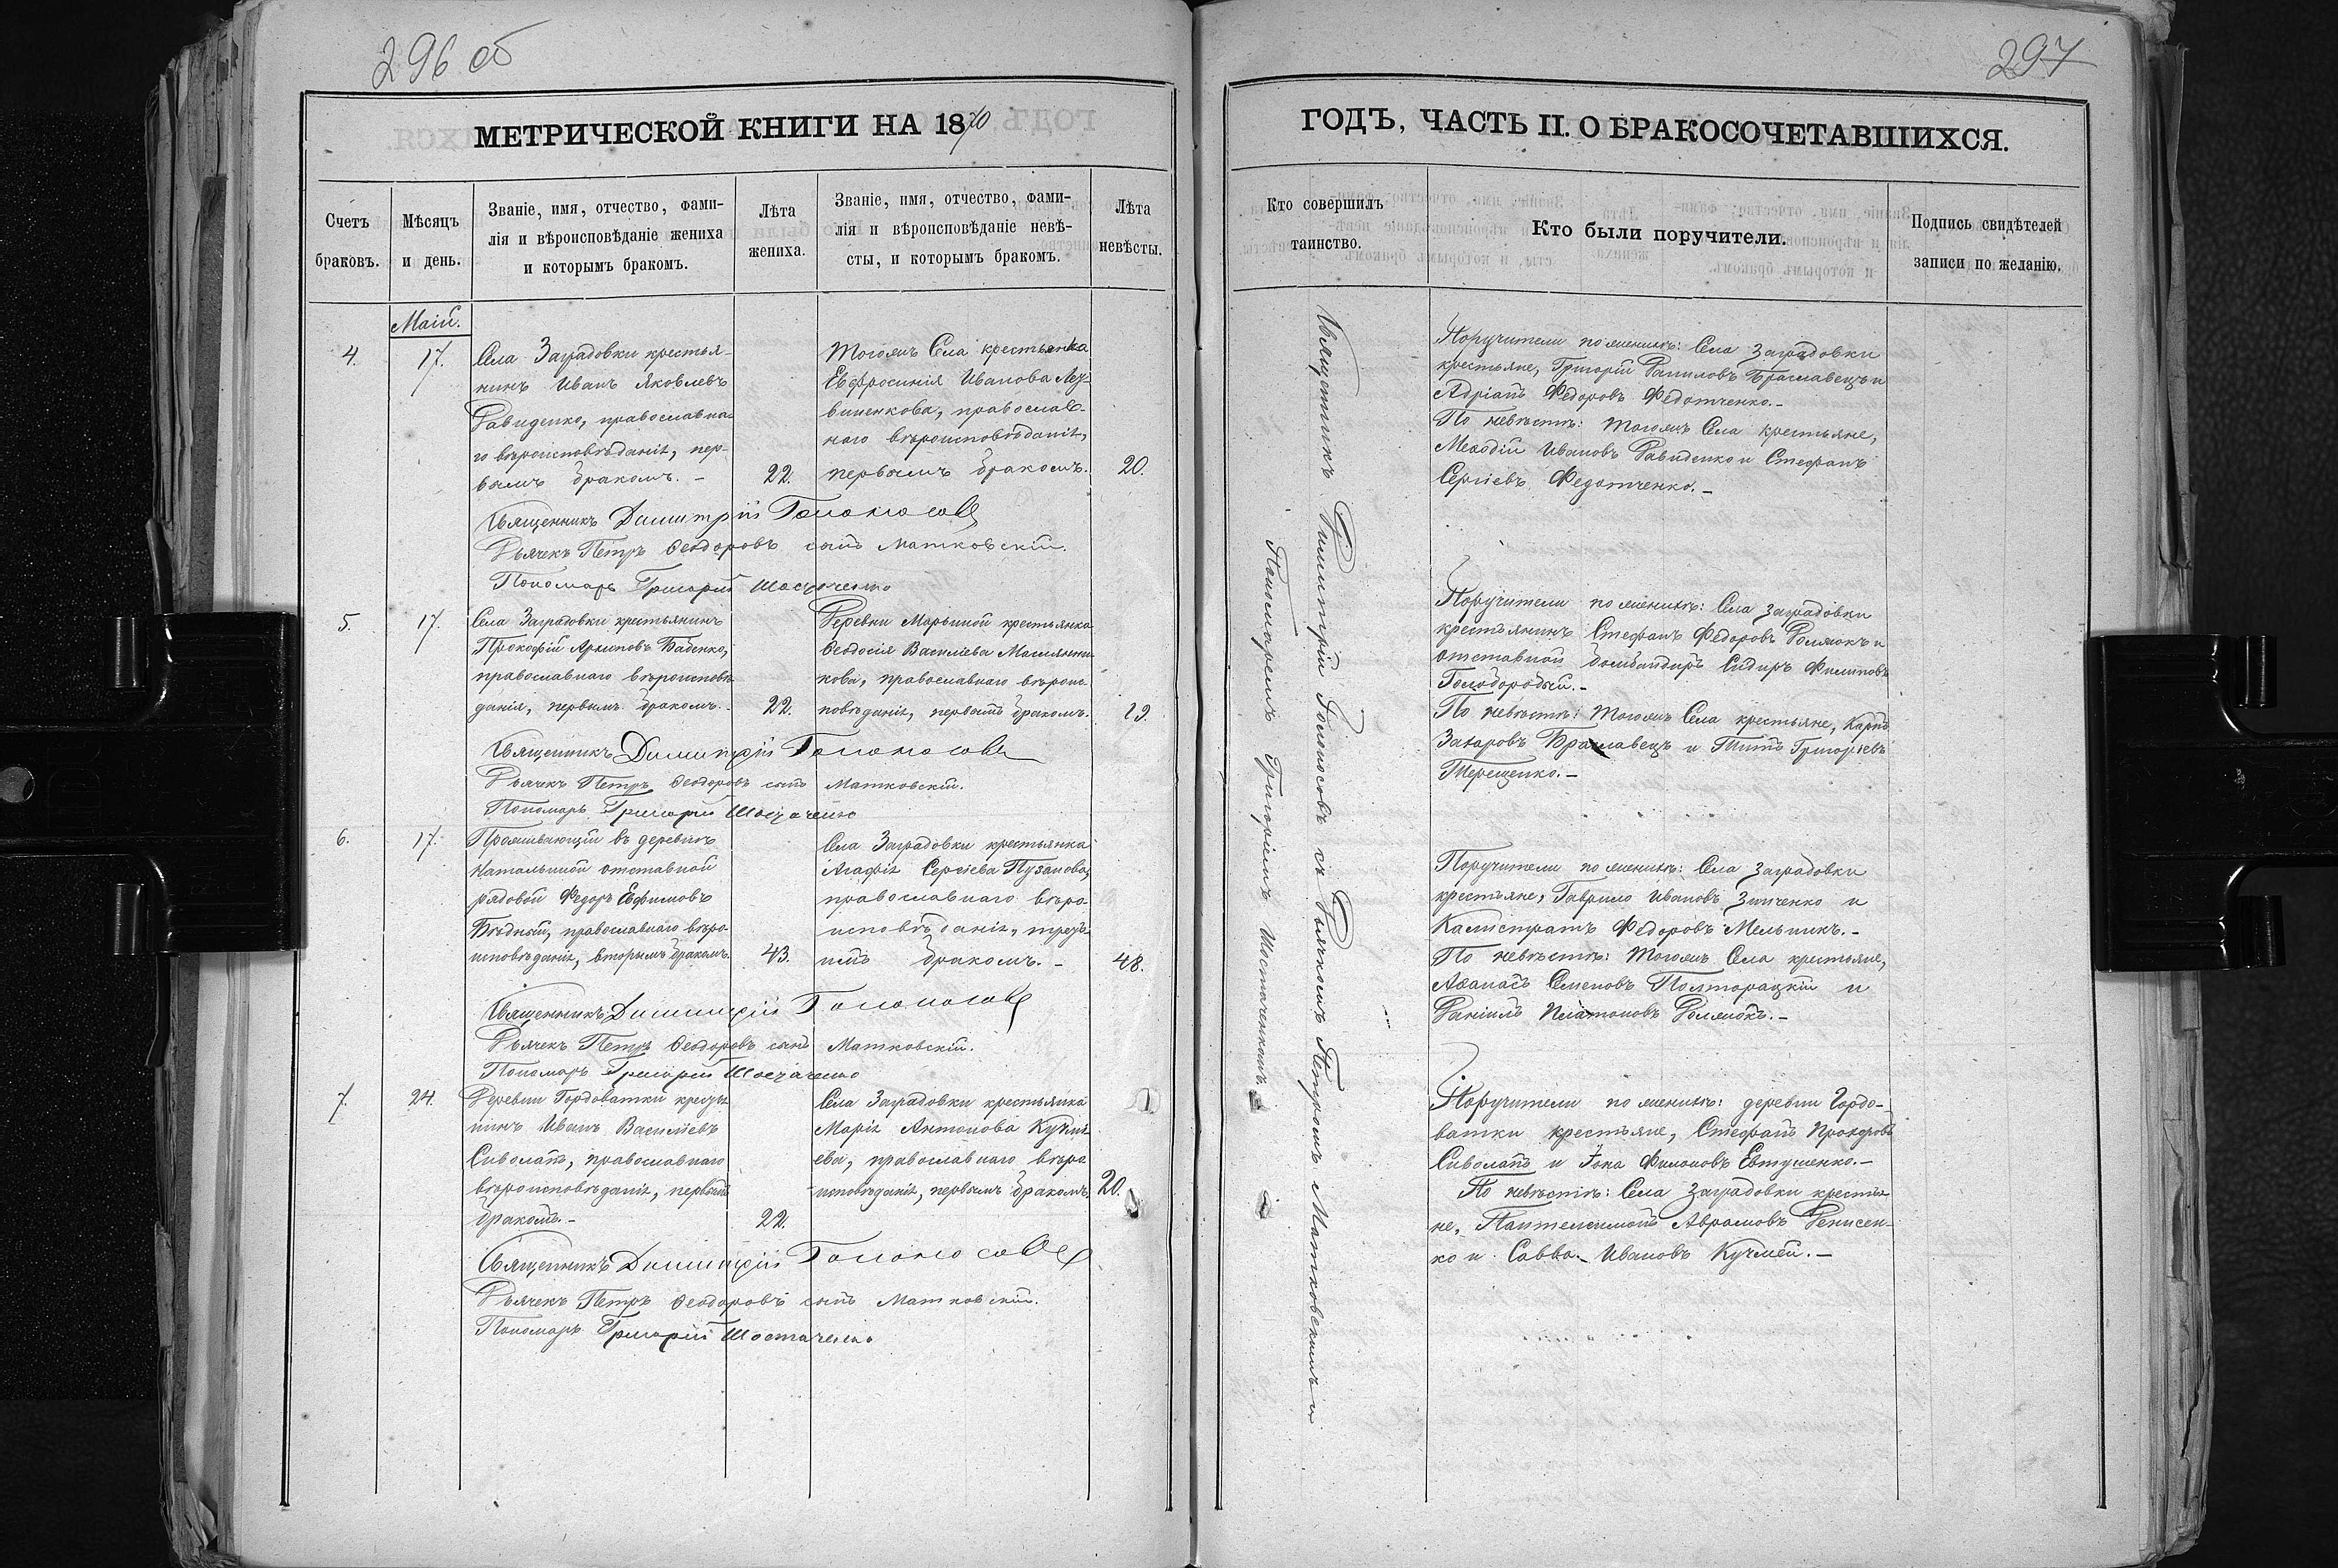 296 об
297
МЕТРИЧЕСКОЙ КНИГИ НА 1870
ГОДЪ, ЧАСТЬ II. О БРАКОСОЧЕТАВШИХСЯ.
Счетъ
браковъ.
Мѣсяцъ
и день.
Званіе, имя, отчество, фами-
лія и вѣроисповѣданіе жениха
и которымъ бракомъ.
Лѣта
жениха.
Званіе, имя, отчество, фами-
лія и вѣроисповѣданіе невѣ-
сты, и которымъ бракомъ.
Лѣта
невѣсты.
Кто совершилъ
таинство.
Кто были поручители.
Подпись свидѣтелей
записи по желанію.
Маій.
4.
17.
Села Заградовки крестья-
нинъ Иванъ Яковлевъ
Давиденко, православна-
го вѣроисповѣданія, пер-
вымъ бракомъ. –
22.
Тогожъ Села крестьянка
Евфросинія Иванова
православ-
наго вѣроисповѣданія,
первымъ бракомъ.
20.
Священникъ Димитрій Голоносовъ
Дьячекъ Петръ Ѳеодоровъ сынъ Матковскій.
Пономарь Григорій Шостаченко
5.
17.
Села Заградовки крестьянинъ
Прокофій Архиповъ Бабенко,
православнаго вѣроисповѣ-
данія, первымъ бракомъ.
22.
Деревни Марьиной крестьянка
Ѳеодосія Василіева Маслянни-
кова, православнаго вѣроис-
повѣданія, первымъ бракомъ.
19.
Священникъ Димитрій Голоносовъ
Дьячекъ Петръ Ѳеодоровъ сынъ Матковскій.
Пономарь Григорій Шостаченко
6.
17.
Проживающій въ деревнѣ
Натальиной отставной
рядовой Федоръ Ефимовъ
Бѣдный, православнаго вѣро-
исповѣданія, вторымъ бракомъ.
43.
Села Заградовки крестьянка
Агафія Сергіева Пузанова,
православнаго вѣро-
исповѣданія, треть-
имъ бракомъ. –
48.
Священникъ Димитрій Голоносовъ
Дьячекъ Петръ Ѳеодоровъ сынъ Матковскій.
Пономарь Григорій Шостаченко
7.
24.
Деревни Гордоватки крестья-
нинъ Иванъ Василіевъ
Сиволапъ, православнаго
вѣроисповѣданія, первымъ
бракомъ. –
22.
Села Заградовки крестьянка
Марія Антонова Кучмі-
ева, православнаго вѣро
исповѣданія, первымъ бракомъ.
20.
Священникъ Димитрій Голоносовъ
Дьячекъ Петръ Ѳеодоровъ сынъ Матковскій.
Пономарь Григорій Шостаченко
Священникъ Димитрій Голоносовъ съ Дьячкомъ Петромъ Матковскимъ и
Пономаремъ Григоріемъ Шостаченкомъ.
Поручители по женихѣ: Села Заградовки
крестьяне, Григорій Даниловъ Браславецъ и
Адріанъ Федоровъ Федотченко. –
По невѣстѣ: Тогожъ Села крестьяне,
Меѳодій Ивановъ Давиденко и Стефанъ
Сергіевъ Федотченко. –
Поручители по женихѣ: Села Заградовки
крестьянинъ Стефанъ Федоровъ Долянокъ и
отставной бомбандиръ Сидиръ Филиповъ
Голобородый. –
По невѣстѣ: Тогожъ Села крестьяне, Карпъ
Захаровъ Браславецъ и Титъ Григоріевъ
Терещенко. –
Поручители по женихѣ: Села Заградовки
крестьяне, Гаврило Ивановъ Зинченко и
Калистратъ Федоровъ Мельникъ. –
По невѣстѣ: Тогожъ Села крестьяне,
Аѳанасъ Семеновъ Полторацкій и
Даніилъ Платоновъ Долянокъ. –
Поручители по женихѣ: деревни Гордо-
ватки крестьяне, Стефанъ Прохоровъ
Сиволапъ и Іона Филоновъ Евтушенко. –
По невѣстѣ: Села Заградовки крестья-
не, Пантелеимонъ Аврамовъ Денисен-
ко и Савва Ивановъ Кучмій. –